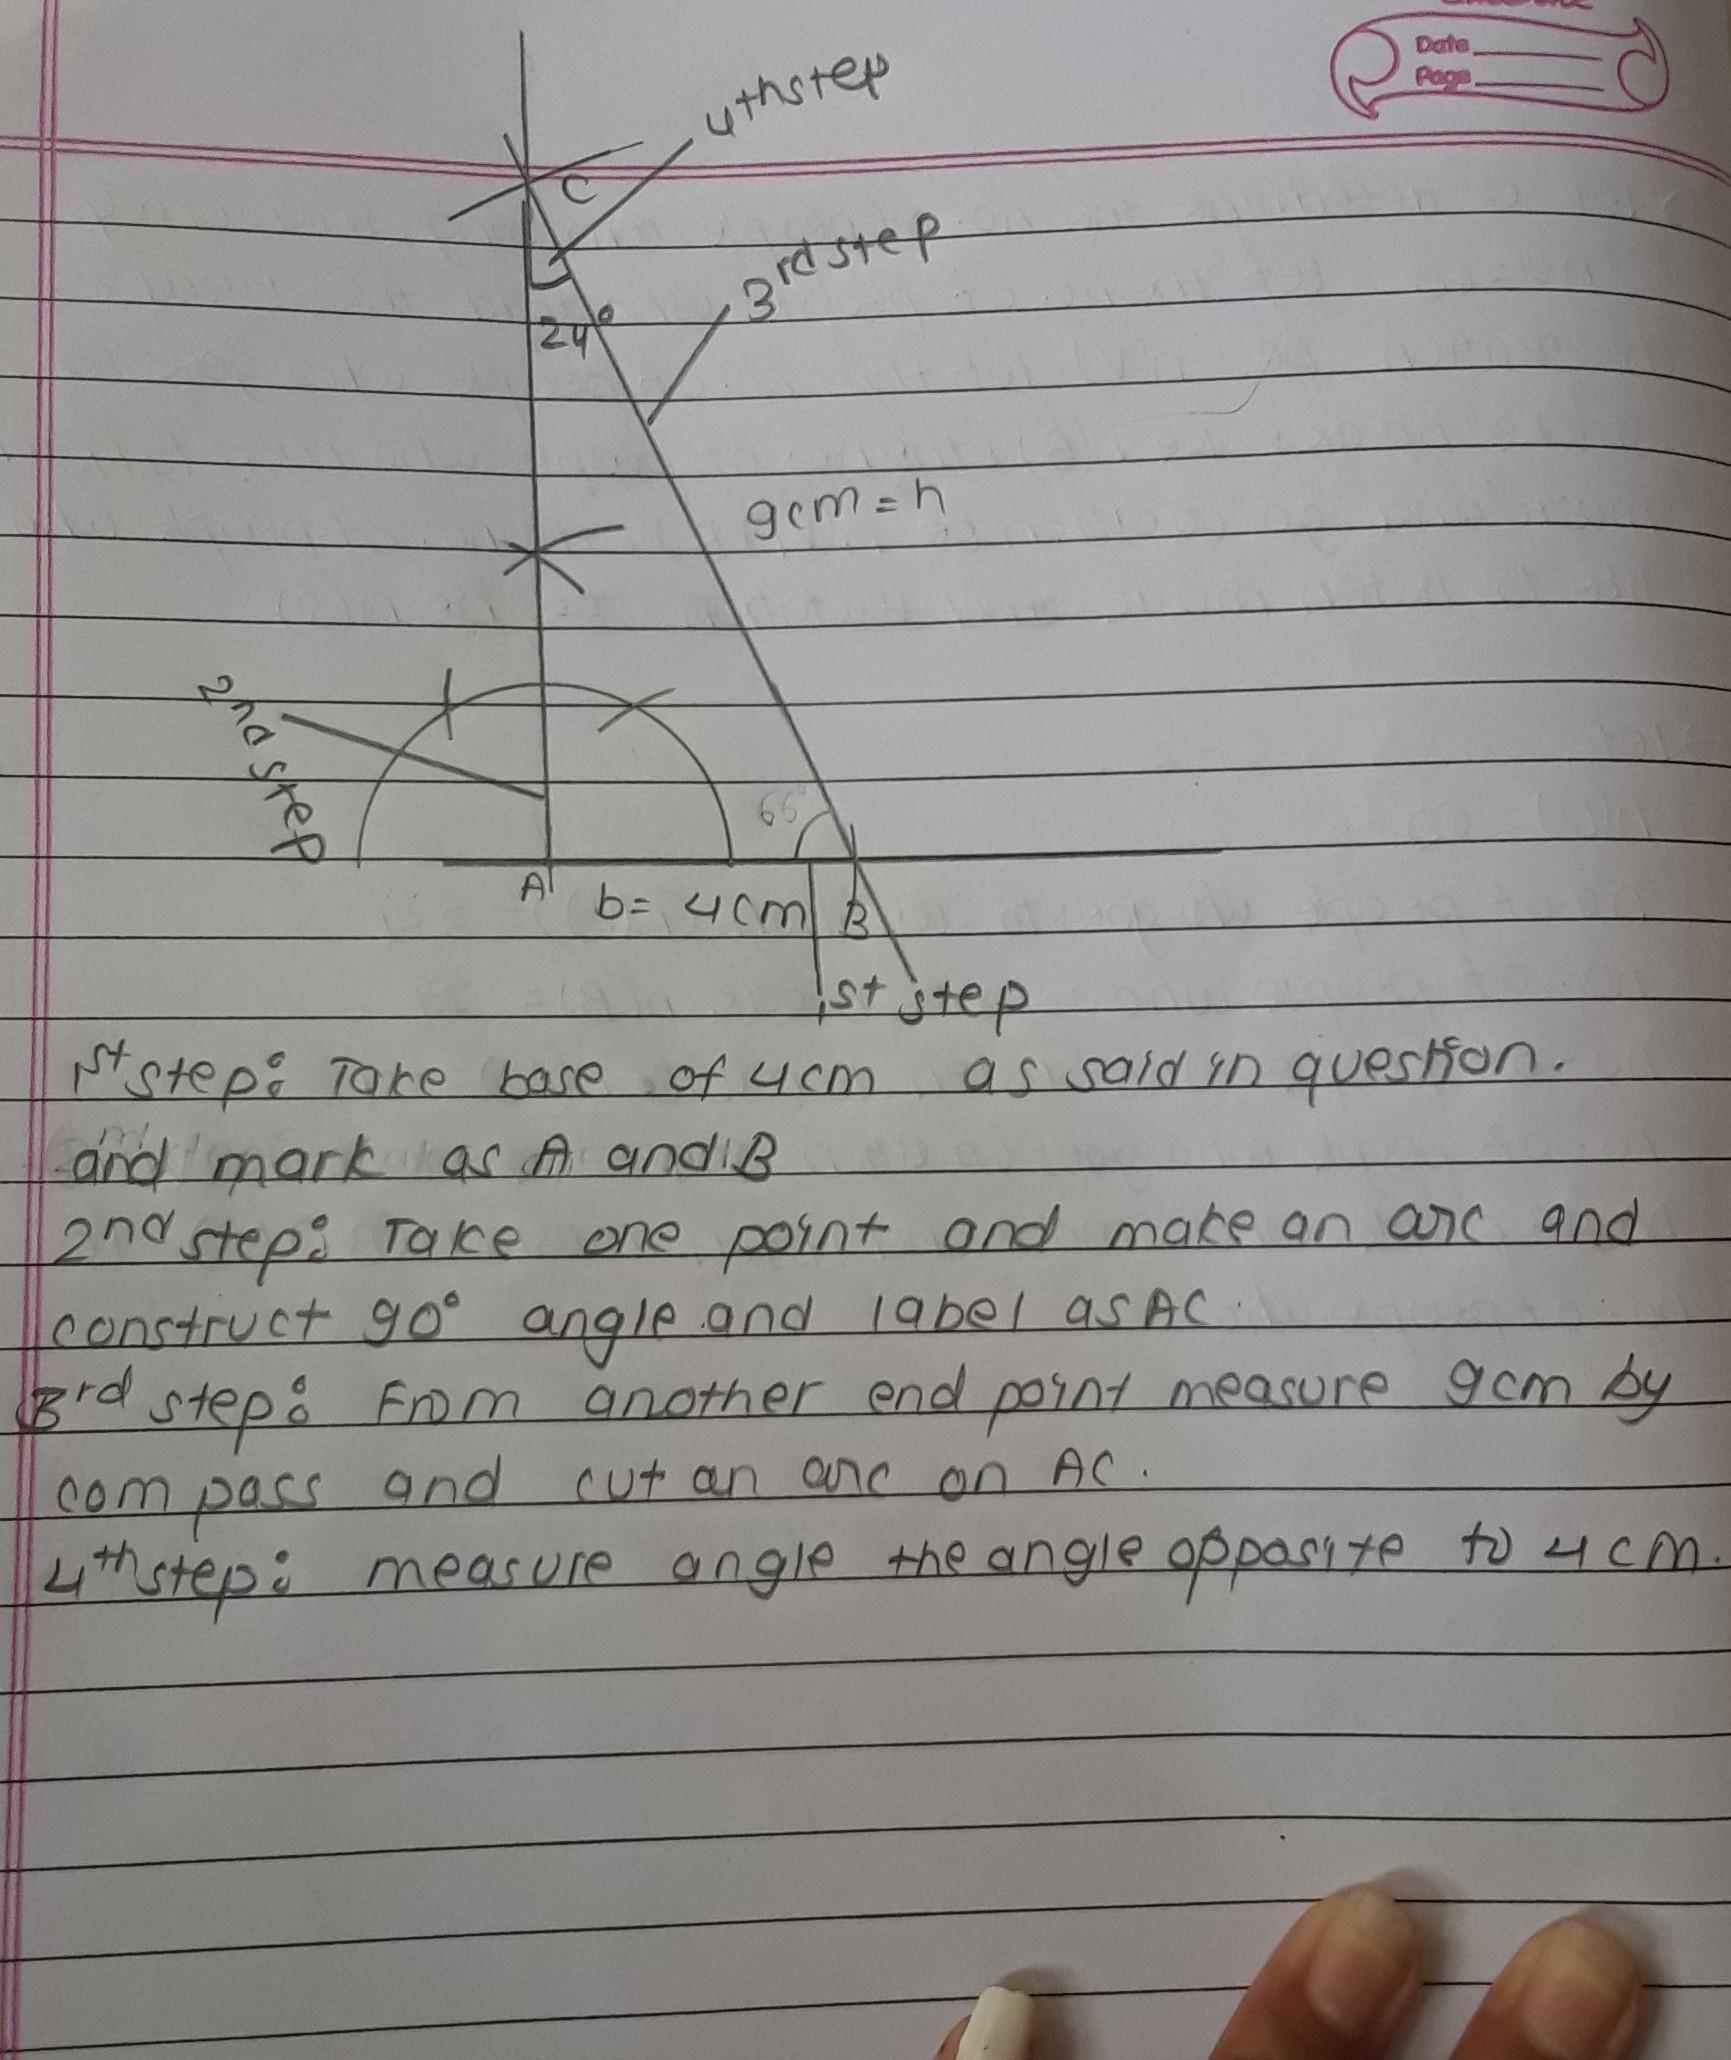 Date
Page
4th step
C
3rd step
24°
9cm = h
2nd step
66°
A
b= 4cm
B
1st step
1st step: Take base of 4cm as said in question.
and mark as A and B
2nd step: Take one point and make an arc and
construct 90° angle and label as AC.
3rd step: From another end point measure 9cm by
compass and cut an arc on AC.
4th step: measure angle the angle opposite to 4cm.